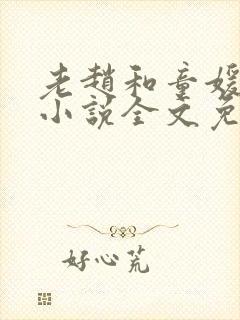 老趙和童媛
小說全文免
好心荒